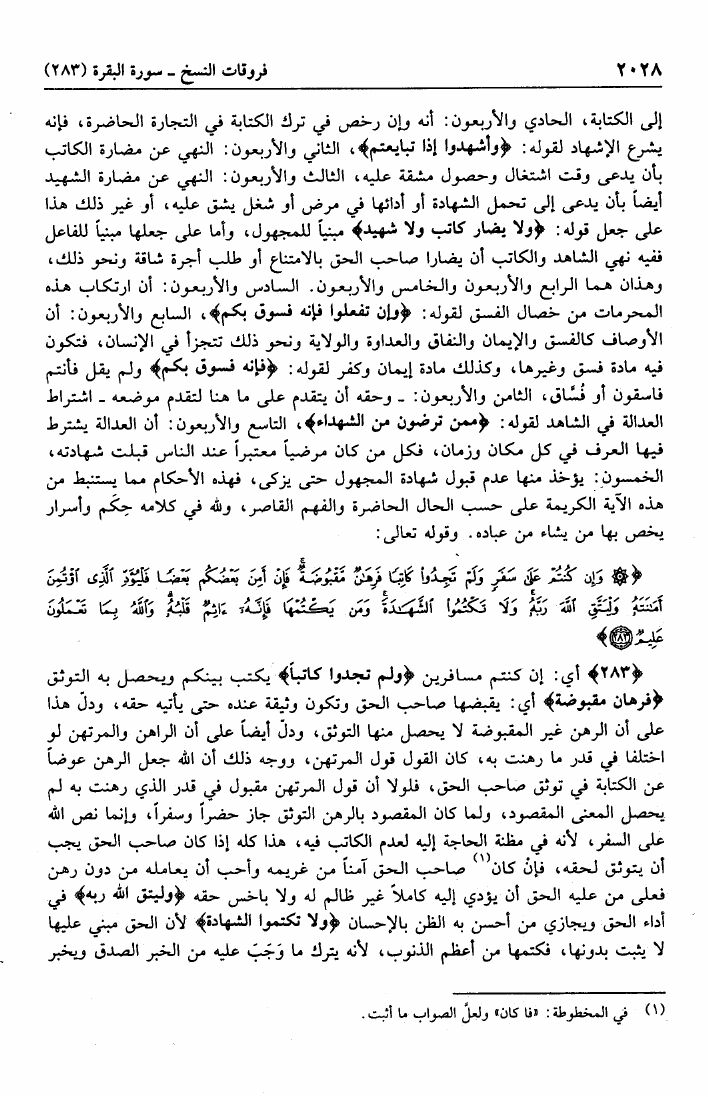 ٢٠٢٨ فروقات النسخ ـ سورة البقرة (٢٨٣)
إلى الكتابة، الحادي والأربعون: أنه وإن رخص في ترك الكتابة في التجارة الحاضرة، فإنه
يشرع الإشهاد لقوله: ﴿وأشهدوا إذا تبايعتم﴾، الثاني والأربعون: النهي عن مضارة الكاتب
بأن يدعى وقت اشتغال وحصول مشقة عليه، الثالث والأربعون: النهي عن مضارة الشهيد
أيضاً بأن يدعى إلى تحمل الشهادة أو أدائها في مرض أو شغل يشق عليه، أو غير ذلك هذا
على جعل قوله: ﴿ولا يضار كاتب ولا شهيد﴾ مبنياً للمجهول، وأما على جعلها مبنياً للفاعل
ففيه نهي الشاهد والكاتب أن يضارا صاحب الحق بالامتناع أو طلب أجرة شاقة ونحو ذلك،
وهذان هما الرابع والأربعون والخامس والأربعون. السادس والأربعون: أن ارتكاب هذه
المحرمات من خصال الفسق لقوله: ﴿وإن تفعلوا فإنه فسوق بكم﴾، السابع والأربعون: أن
الأوصاف كالفسق والإيمان والنفاق والعداوة والولاية ونحو ذلك تتجزأ في الإنسان، فتكون
فيه مادة فسق وغيرها، وكذلك مادة إيمان وكفر لقوله: ﴿فإنه فسوق بكم﴾ ولم يقل فأنتم
فاسقون أو فُسَّاق، الثامن والأربعون: ـ وحقه أن يتقدم على ما هنا لتقدم موضعه ـ اشتراط
العدالة في الشاهد لقوله: ﴿ممن ترضون من الشهداء﴾، التاسع والأربعون: أن العدالة يشترط
فيها العرف في كل مكان وزمان، فكل من كان مرضياً معتبراً عند الناس قبلت شهادته،
الخمسون: يؤخذ منها عدم قبول شهادة المجهول حتى يزكى، فهذه الأحكام مما يستنبط من
هذه الآية الكريمة على حسب الحال الحاضرة والفهم القاصر، ولله في كلامه حِكَم وأسرار
يخص بها من يشاء من عباده. وقوله تعالى:
﴿۞ وَإِن كُنتُمْ عَلَىٰ سَفَرٍ وَلَمْ تَجِدُوا۟ كَاتِبًا فَرِهَٰنٌ مَّقْبُوضَةٌ ۖ فَإِنْ أَمِنَ بَعْضُكُم بَعْضًا فَلْيُؤَدِّ ٱلَّذِى ٱؤْتُمِنَ
أَمَٰنَتَهُۥ وَلْيَتَّقِ ٱللَّهَ رَبَّهُۥ ۗ وَلَا تَكْتُمُوا۟ ٱلشَّهَٰدَةَ ۚ وَمَن يَكْتُمْهَا فَإِنَّهُۥٓ ءَاثِمٌ قَلْبُهُۥ ۗ وَٱللَّهُ بِمَا تَعْمَلُونَ
عَلِيمٌ ٢٨٣﴾
﴿٢٨٣﴾ أي: إن كنتم مسافرين ﴿ولم تجدوا كاتباً﴾ يكتب بينكم ويحصل به التوثق
﴿فرهان مقبوضة﴾ أي: يقبضها صاحب الحق وتكون وثيقة عنده حتى يأتيه حقه، ودلّ هذا
على أن الرهن غير المقبوضة لا يحصل منها التوثق، ودلّ أيضاً على أن الراهن والمرتهن لو
اختلفا في قدر ما رهنت به، كان القول قول المرتهن، ووجه ذلك أن الله جعل الرهن عوضاً
عن الكتابة في توثق صاحب الحق، فلولا أن قول المرتهن مقبول في قدر الذي رهنت به لم
يحصل المعنى المقصود، ولما كان المقصود بالرهن التوثق جاز حضراً وسفراً، وإنما نص الله
على السفر، لأنه في مظنة الحاجة إليه لعدم الكاتب فيه، هذا كله إذا كان صاحب الحق يجب
أن يتوثق لحقه، فإنْ كان(١) صاحب الحق آمناً من غريمه وأحب أن يعامله من دون رهن
فعلى من عليه الحق أن يؤدي إليه كاملاً غير ظالم له ولا باخس حقه ﴿وليتق الله ربه﴾ في
أداء الحق ويجازي من أحسن به الظن بالإحسان ﴿ولا تكتموا الشهادة﴾ لأن الحق مبني عليها
لا يثبت بدونها، فكتمها من أعظم الذنوب، لأنه يترك ما وَجَبَ عليه من الخبر الصدق ويخبر
(١) في المخطوطة: «فا كان» ولعلَّ الصواب ما أثبت.